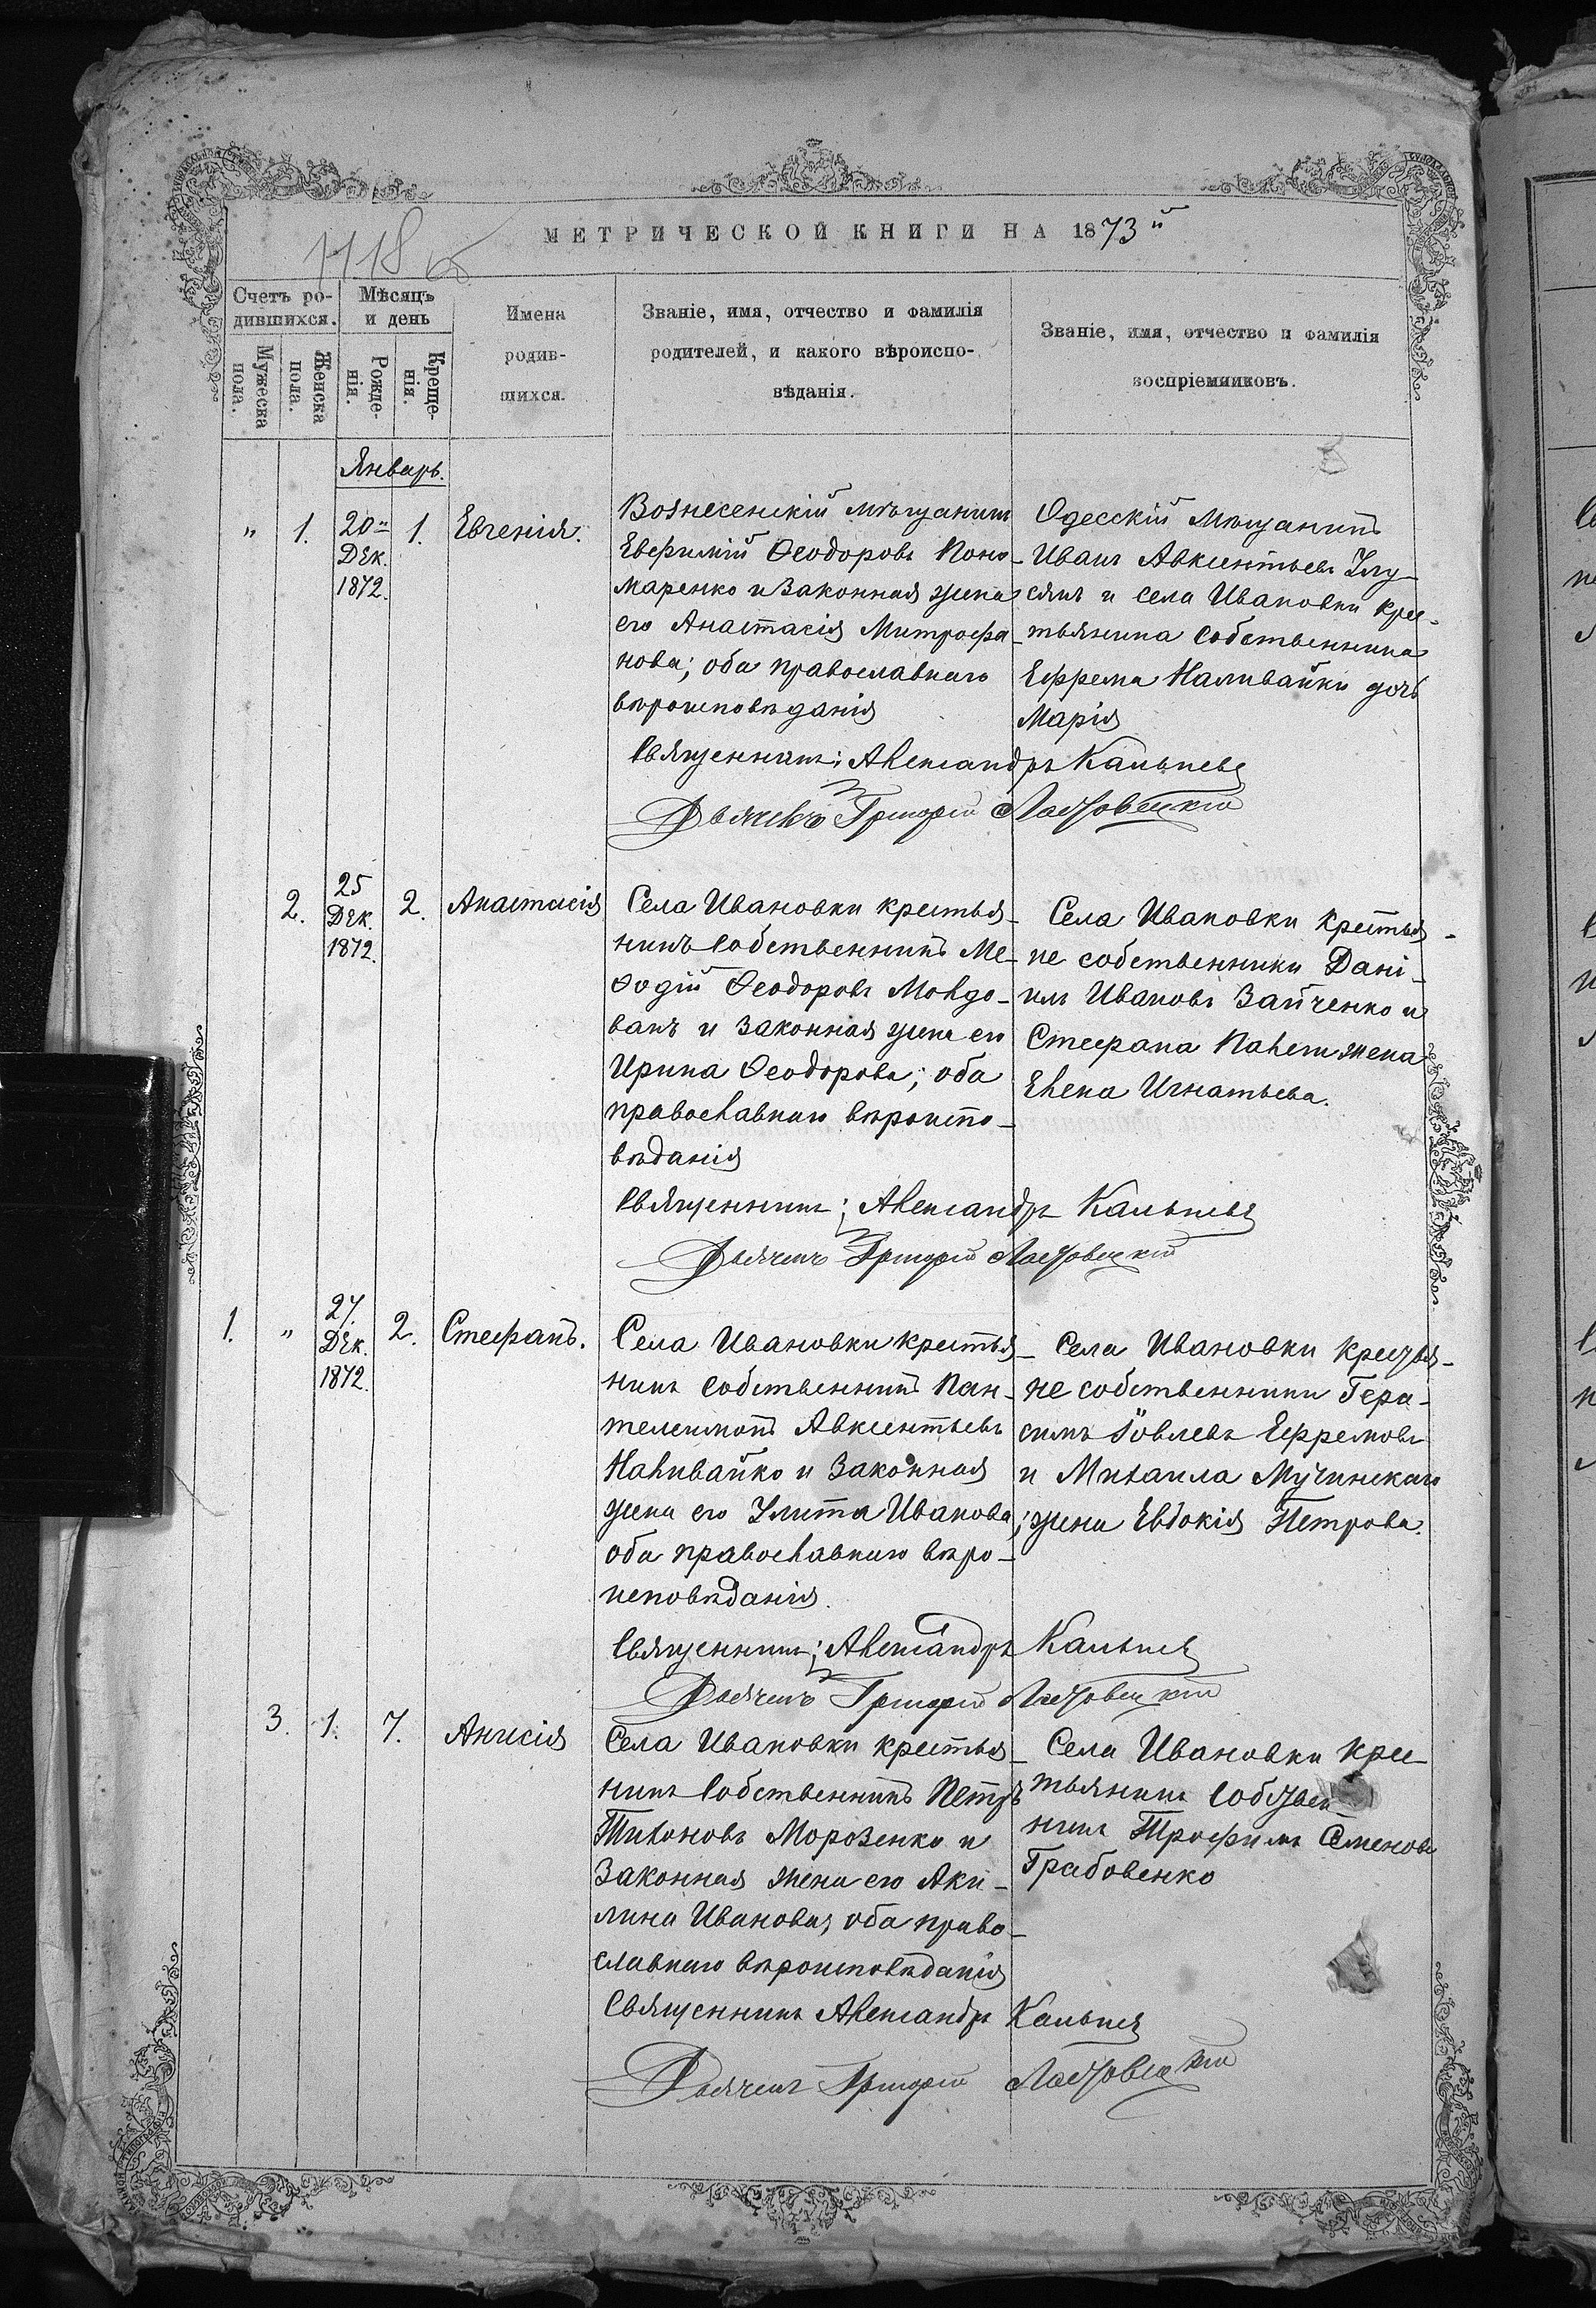 МЕТРИЧЕСКОЙ КНИГИ НА 1873й
Счетъ ро-
дившихся.
Мѣсяцъ
и день
Мужеска
пола.
Женска
пола.
Рожде-
нія.
Креще-
нія.
Имена
родив-
шихся.
Званіе, имя, отчество и фамилія
родителей, и какого вѣроиспо-
вѣданія.
Званіе, имя, отчество и фамилія
воспріемниковъ.
Январь.
" 1. 20 Дек. 1872. 1. Евгенія.
Вознесенскій мѣщанинъ
Евфимій Ѳеодоровъ Поно-
маренко и законная жена
его Анастасія Митрофа-
нова; оба православнаго
вѣроисповѣданія
Одесскій мѣщанинъ
Иванъ Авксентьевъ
и села Ивановки крес-
тьянина собственника
Ефрема Наливайки дочь
Марія
Священникъ: Александръ
Дьячекъ Григорій
2. 25 Дек. 1872. 2. Анастасія
Села Ивановки крестья-
нинъ собственникъ Ме-
ѳодій Ѳеодоровъ Молдо-
ванъ и законная жена его
Ирина Ѳеодорова; оба
православнаго вѣроиспо-
вѣданія
Села Ивановки крестья-
не собственники Дані-
илъ Ивановъ Зайченко и
Стефана жена
Елена Игнатьева.
Священникъ: Александръ
Дьячекъ Григорій
1. " 27. Дек. 1872. 2. Стефанъ.
Села Ивановки крестья-
нинъ собственникъ Пан-
телеимонъ Авксентьевъ
Наливайко и законная
жена его Улита Иванова;
оба православнаго вѣро-
исповѣданія.
Села Ивановки крестья-
не собственники Гера-
симъ Іовлевъ Ефремовъ
и Михаила Мучинскаго
жена Евдокія Петрова.
Священникъ: Александръ
Дьячекъ Григорій
3. 1. 7. Анисія
Села Ивановки крестья-
нинъ собственникъ Петръ
Тихоновъ Морозенко и
законная жена его Аки-
лина Иванова, оба право-
славнаго вѣроисповѣданія
Села Ивановки крес-
тьянинъ собствен-
никъ Трофимъ Семеновъ
Грабовенко
Священникъ Александръ
Дьячекъ Григорій